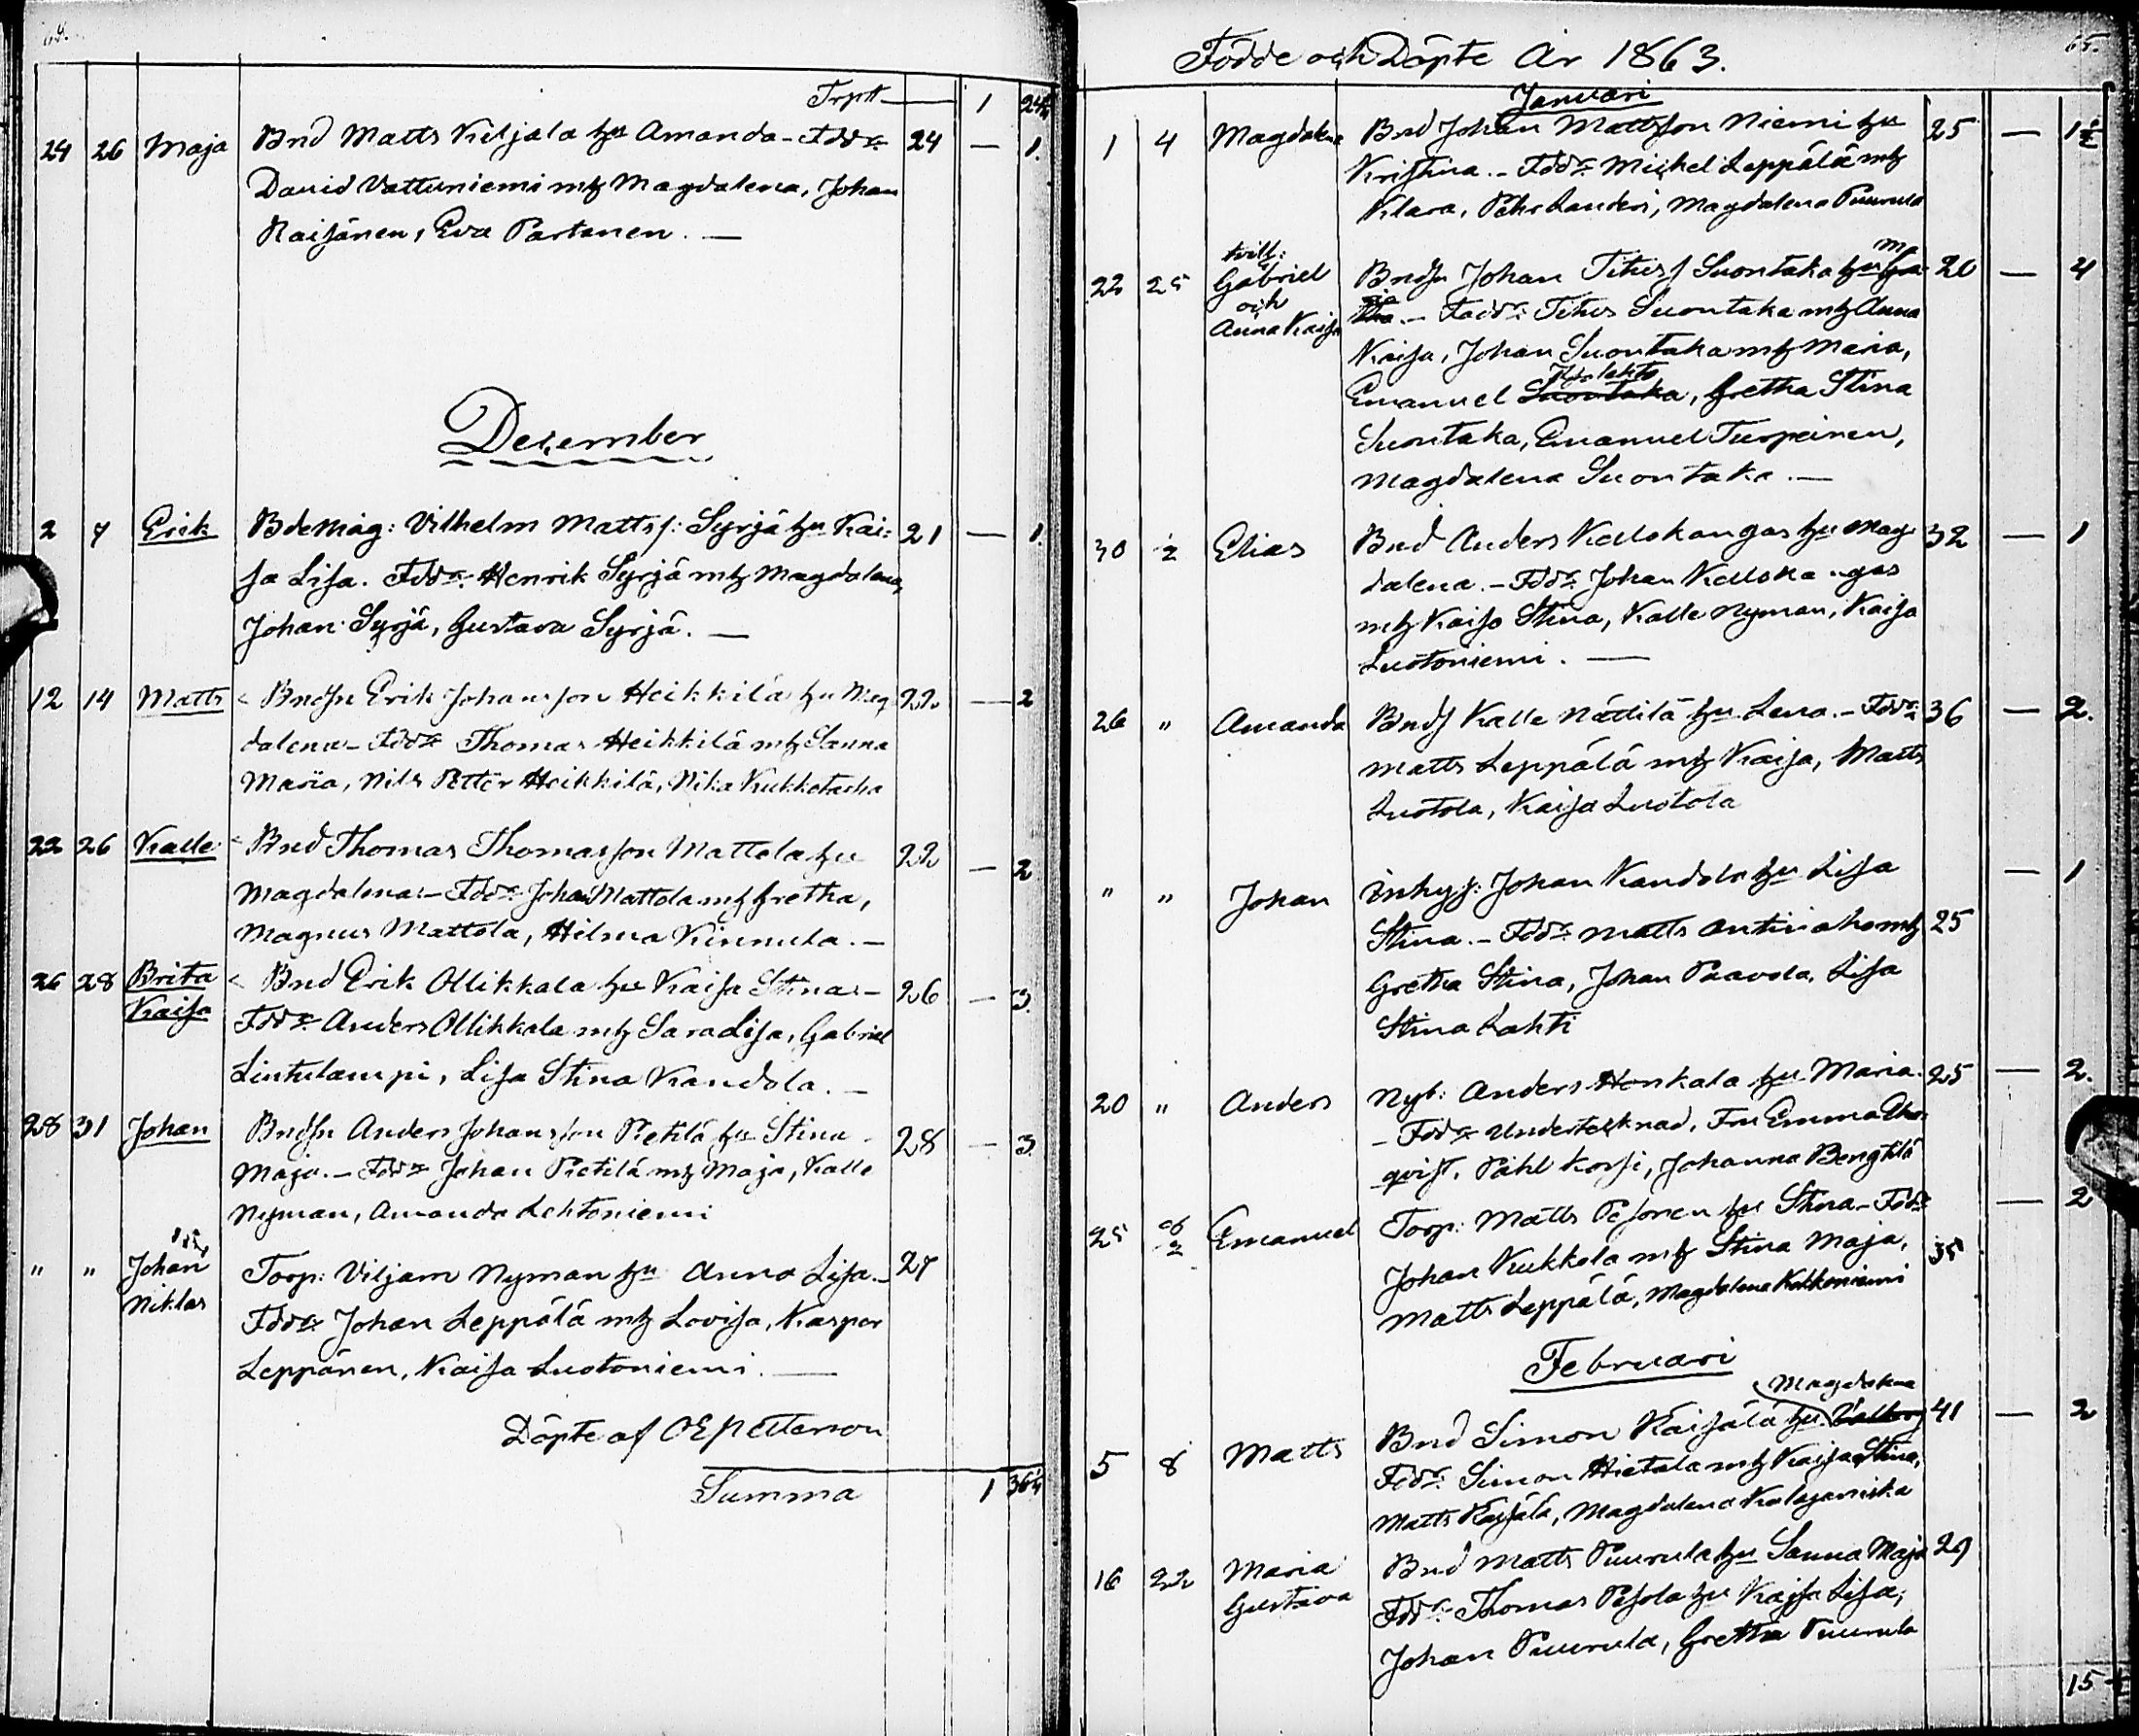 64.
Trpt — 1 24½
24 26 Maja Bnd Matts Kiljala hu Amanda - Fddr: 24 — 1.
David Vattuniemi mh Magdalena, Johan
Raisänen, Eva Partanen. —
December
2 7 Erik Bde Mag: Vilhelm Mattss: Syrjä hu Kai= 21 — 1.
sa Lisa. Fddr: Henrik Syrjä mh Magdalena,
Johan Syrjä, Gustava Syrjä. —
12 14 Matts Bndsn Erik Johansson Heikkilä hu Mag 22 — 2
dalena - Fddr: Thomas Heikkilä mh Sanna
Maria, Nils Petter Heikkilä,
22 26 Kalle Bnd Thomas Thomasson Mattola hu 22 — 2
Magdalena - Fddr: Johan Mattola mh Gretha,
Magnus Mattola, Hilma Kinnula. —
26 28 Brita Bnd Erik Ollikkala hu Kaisa Stina - 26 — 3.
Kaisa Fddr: Anders Ollikkala mh Sara Lisa, Gabriel
Lintulampi, Lisa Stina Kandola. —
28 31 Johan Bndsn Anders Johansson Pietilä hu Stina 28 — 3
Maja. - Fddr: Johan Pietilä mh Maja, Kalle
Nyman, Amanda Lehtoniemi
" " Johan Torp: Viljam Nyman hu Anna Lisa. 27
Niklas Fddr: Johan Leppälä mh Lovisa, Kaspar
Leppänen, Kaisa Luotoniemi. —
Döpte af OE Petterson
Summa 1 36½
65.
Födde och Döpte År 1863.
Januari
1 4 Magdalena Bnd Johan Mattsson Niemi hu 25 — 1½
Kristina. - Fddr: Michel Leppälä mh
Klara, Pehr Landeri, Magdalena Puurula
tvill:
22 25 Gabriel Bndsn Johan Titus Suontaka hu Ma 20 — 4
och
Anna Kaisa ria. - Faddr: Titus Suontaka mh Anna
Kaisa, Johan Suontaka mh Maria,
Emanuel Suontaka, Gretha Stina
Suontaka, Emanuel Turpeinen,
Magdalena Suontaka. —
30 1/2 Elias Bnd Anders Kallokangas hu Mag 32 — 1
dalena. - Fddr: Johan Kallokangas
mh Kaisa Stina, Kalle Nyman, Kaisa
Luotoniemi. —
26 " Amanda Bnds Kalle Nättilä hu Lena. - Fddr: 36 — 2.
Matts Leppälä mh Kaisa, Matts
Luotola, Kaisa Luotola
" " Johan Inhys: Johan Kandola hu Lisa — 1
Stina. - Fddr: Matts Antinaho mh 25
Gretha Stina, Johan Paavola, Lisa
Stina Lahti
20 " Anders Nyb: Anders Honkala hu Maria. 25 — 2.
- Fddr: Undertecknad, Fru Emma
qvist, Påhl Korsi, Johanna Bengtilä
25 2 Emanuel Torp: Matts Pesonen hu Stina - Fddr: — 2
Johan Kukkola mh Stina Maja, 35
Matts Leppälä, Magdalena Kokkoniemi
Februari
Magdalena
5 8 Matts Bnd Simon Raisälä hu Valborg 41 — 2
Fddr: Simon Hietala mh Kaisa Stina,
Matts Raisälä, Magdalena Kalajaniska
16 22 Maria Bnd Matts Puurula hu Sanna Maja 29
Gustava Fddr: Thomas Pesola hu Kajsa Lisa,
Johan Puurula, Gretha Puurula
15